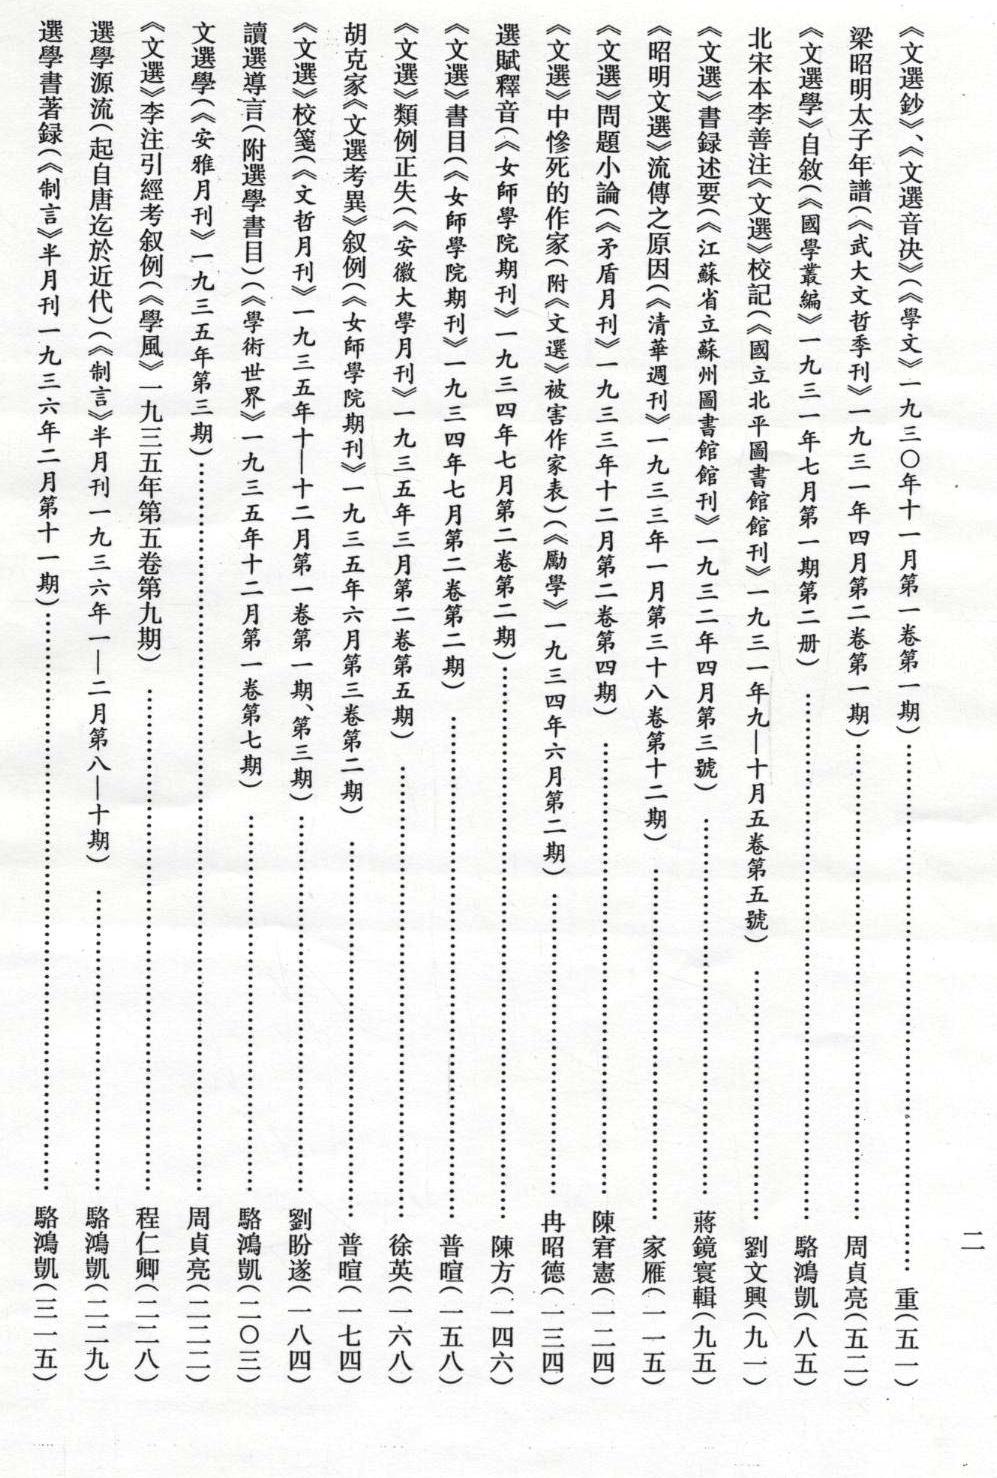 二
《文選鈔》、《文選音决》(《學文》一九三〇年十一月第一卷第一期)……重(五一)
梁昭明太子年譜(《武大文哲季刊》一九三一年四月第二卷第一期)……周貞亮(五二)
《文選學》自敘(《國學叢編》一九三一年七月第一期第二册)……駱鴻凱(八五)
北宋本李善注《文選》校記(《國立北平圖書館館刊》一九三一年九—十月五卷第五號)……劉文興(九一)
《文選》書録述要(《江蘇省立蘇州圖書館館刊》一九三二年四月第三號)……蔣鏡寰輯(九五)
《昭明文選》流傳之原因(《清華週刊》一九三三年一月第三十八卷第十二期)……家雁(一一五)
《文選》問題小論(《矛盾月刊》一九三三年十二月第二卷第四期)……陳窘憲(一二四)
《文選》中慘死的作家(附《文選》被害作家表)(《勵學》一九三四年六月第二期)……冉昭德(一三四)
選賦釋音(《女師學院期刊》一九三四年七月第二卷第二期)……陳方(一四六)
《文選》書目(《女師學院期刊》一九三四年七月第二卷第二期)……普暄(一五八)
《文選》類例正失(《安徽大學月刊》一九三五年三月第二卷第五期)……徐英(一六八)
胡克家《文選考異》叙例(《女師學院期刊》一九三五年六月第三卷第二期)……普暄(一七四)
《文選》校箋(《文哲月刊》一九三五年十—十二月第一卷第一期、第三期)……劉盼遂(一八四)
讀選導言(附選學書目)(《學術世界》一九三五年十二月第一卷第七期)……駱鴻凱(二〇三)
文選學(《安雅月刊》一九三五年第三期)……周貞亮(二二二)
《文選》李注引經考叙例(《學風》一九三五年第五卷第九期)……程仁卿(二二八)
選學源流(起自唐迄於近代)(《制言》半月刊一九三六年一—二月第八—十期)……駱鴻凱(二二九)
選學書著録(《制言》半月刊一九三六年二月第十一期)……駱鴻凱(三一五)